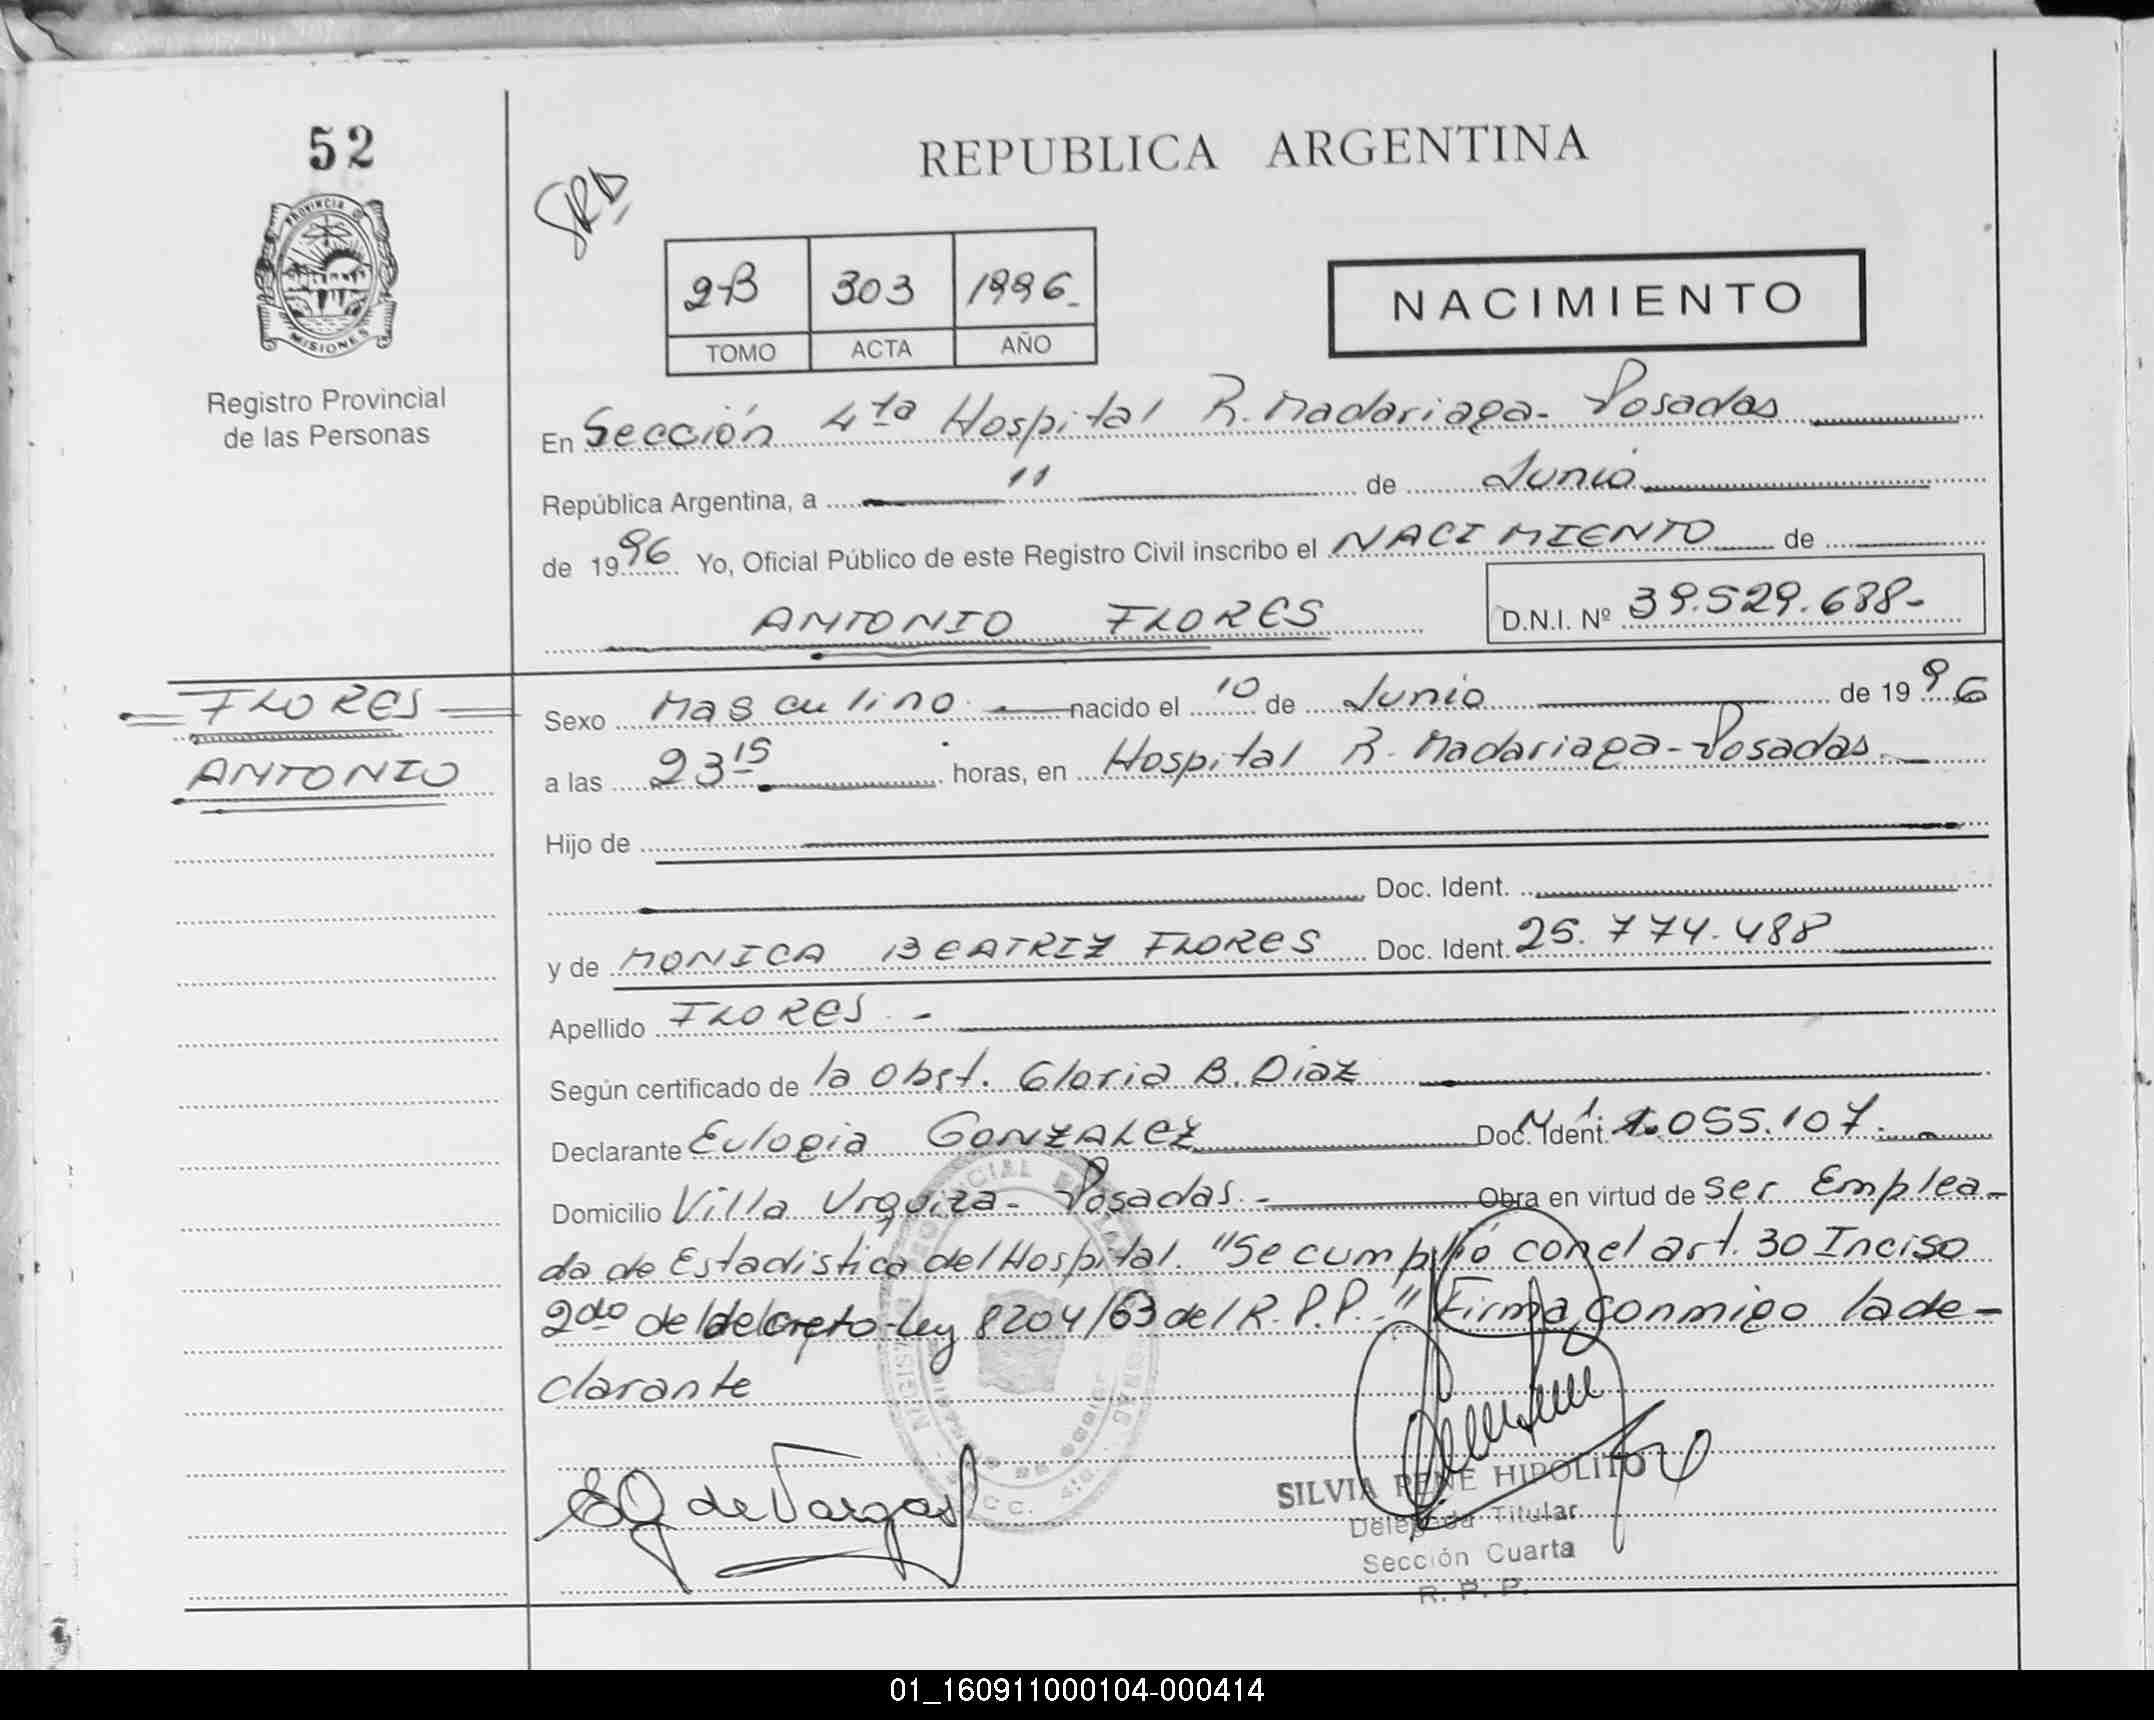 52
REPUBLICA ARGENTINA
SRD
PROVINCIA DE
MISIONES
Registro Provincial
de las Personas
2-B 303 1996-
TOMO ACTA AÑO
NACIMIENTO
En Sección 4ta Hospital R. Madariaga- Posadas
República Argentina, a 11 de Junio
de 1996 Yo, Oficial Público de este Registro Civil inscribo el NACIMIENTO de
ANTONIO FLORES D.N.I. Nº 39.529.688-
FLORES
ANTONIO
Sexo Masculino nacido el 10 de Junio de 1996
a las 23 15 horas, en Hospital R. Madariaga-Posadas.
Hijo de
Doc. Ident.
y de MONICA BEATRIZ FLORES Doc. Ident. 25.774.488
Apellido FLORES.-
Según certificado de la Obst. Gloria B. Diaz
Declarante Eulogia GONZALEZ Doc. Ident. M.I. 1.055.107.-
Domicilio Villa Urquiza- Posadas.- Obra en virtud de ser Emplea-
da de Estadistica del Hospital. "Se cumplió con el art. 30 Inciso
2do del decreto-ley 8204/63 del R.P.P.-" Firma conmigo la de-
clarante
EG de Vargas
SILVIA RENE HIPOLITO
Delegada Titular
Sección Cuarta
R. P. P.
01_160911000104-000414